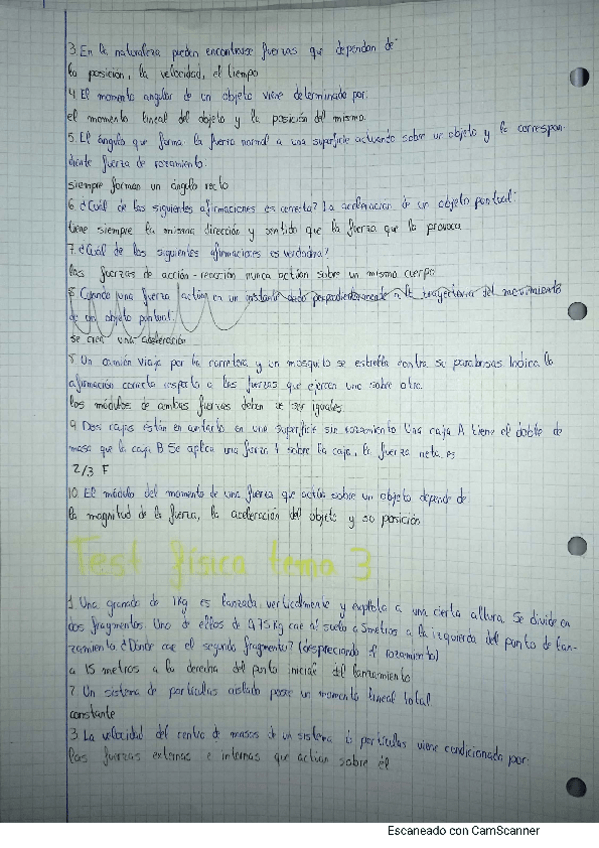 3. En la naturaleza pueden encontrarse fuerzas que dependan de
la posición, la velocidad, el tiempo
4. El momento angular de un objeto viene determinado por:
el momento lineal del objeto y la posición del mismo.
5. El ángulo que forma la fuerza normal a una superficie actuando sobre un objeto y la correspon-
diente fuerza de rozamiento:
siempre forman un ángulo recto
6. ¿Cuál de las siguientes afirmaciones es correcta? La aceleración de un objeto puntual:
tiene siempre la misma dirección y sentido que la fuerza que la provoca
7. ¿Cuál de las siguientes afirmaciones es verdadera?
las fuerzas de acción-reacción nunca actúan sobre un mismo cuerpo
8. Cuando una fuerza actúa en un instante dado perpendicularmente a la trayectoria del movimiento
de un objeto puntual:
se crea una aceleración
8. Un camión viaja por la carretera y un mosquito se estrella contra su parabrisas. Indica la
afirmación correcta respecto a las fuerzas que ejercen uno sobre otro.
los módulos de ambas fuerzas deben de ser iguales.
9. Dos cajas están en contacto en una superficie sin rozamiento. Una caja A tiene el doble de
masa que la caja B. Se aplica una fuerza sobre la caja, la fuerza neta es
2/3 F
10. El módulo del momento de una fuerza que actúa sobre un objeto depende de
la magnitud de la fuerza, la aceleración del objeto y su posición
Test física tema 3
1. Una granada de 1Kg es lanzada verticalmente y explota a una cierta altura. Se divide en
dos fragmentos. Uno de ellos de 0,75 Kg cae al suelo a 5 metros a la izquierda del punto de lan-
zamiento. ¿Dónde cae el segundo fragmento? (despreciando el rozamiento)
a 15 metros a la derecha del punto inicial del lanzamiento
2. Un sistema de partículas aislado posee un momento lineal total
constante
3. La velocidad del centro de masas de un sistema de partículas viene condicionada por:
las fuerzas externas e internas que actúan sobre él
Escaneado con CamScanner